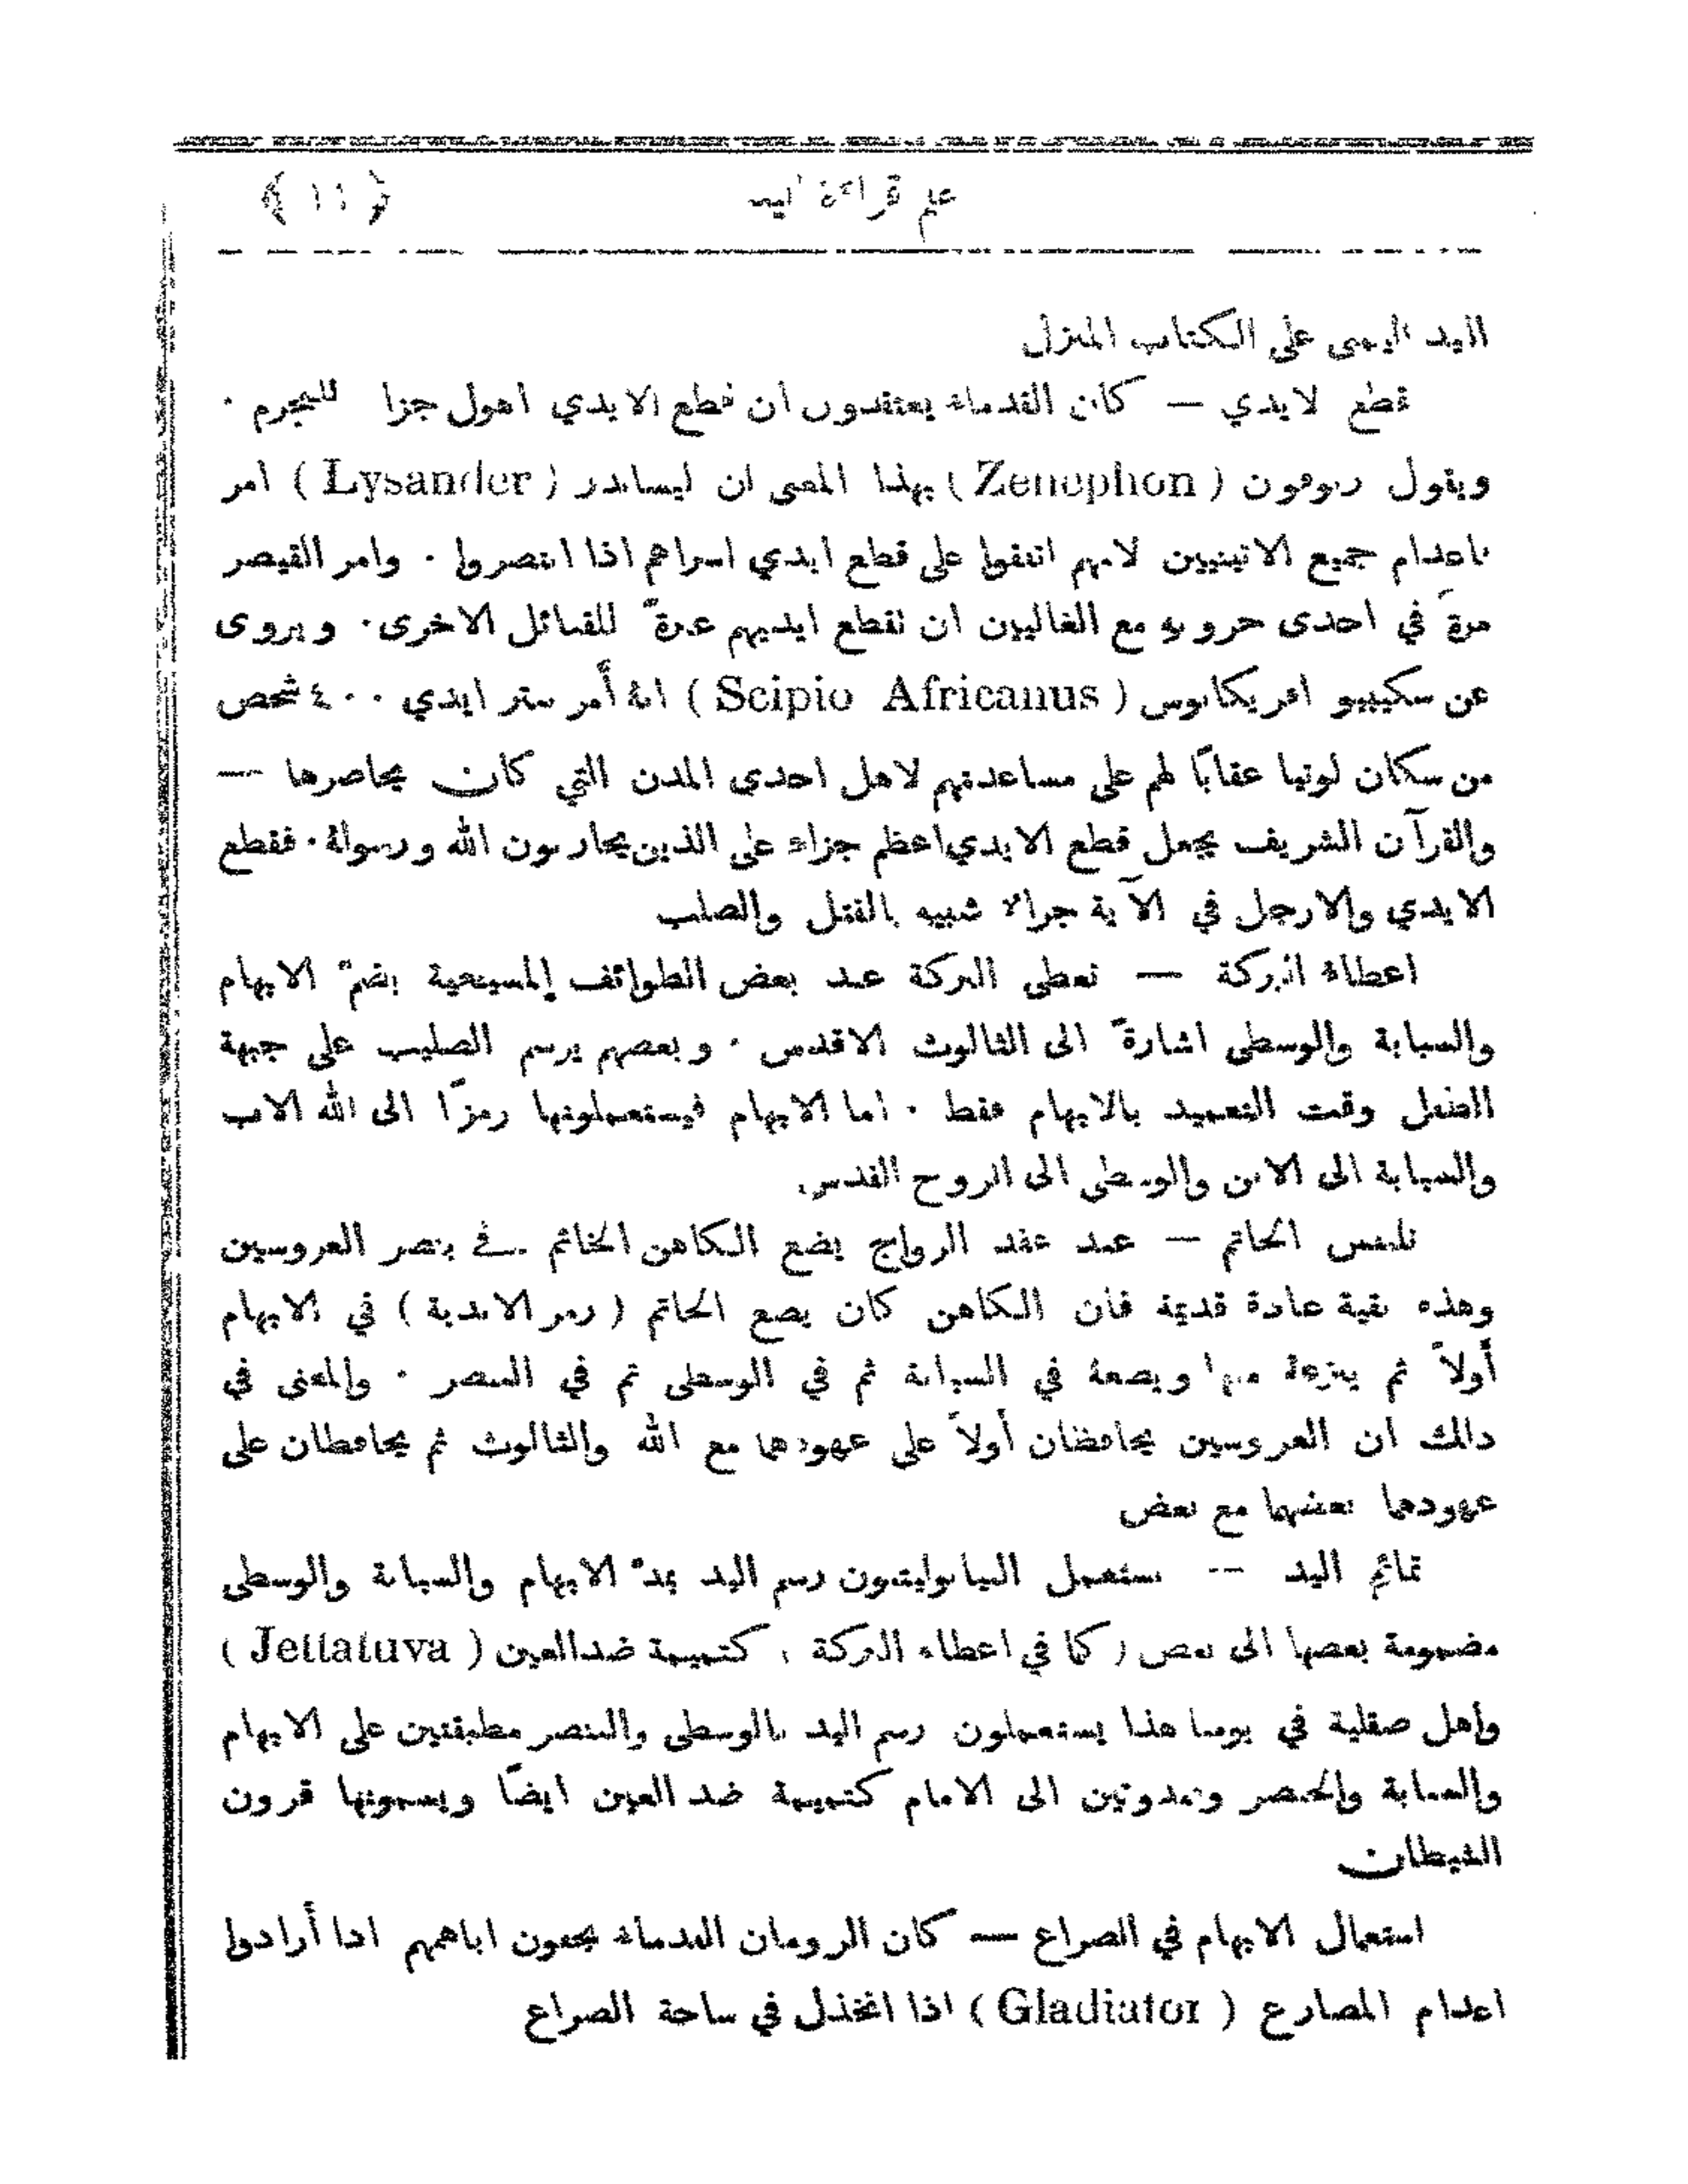 علم قراءة اليد ﴿ ١١ ﴾
اليد اليمنى على الكتاب المنزل
قطع الايدي — كان القدماء يعتقدون ان قطع الايدي اهول جزاء للمجرم .
ويقول زنوفون ( Zenephon ) بهذا المعنى ان ليساندر ( Lysander ) امر
باعدام جميع الاثينيين لانهم اتفقوا على قطع ايدي اسراهم اذا انتصروا . وامر القيصر
مرةً في احدى حروبه مع الغاليين ان تقطع ايديهم عبرةً للقبائل الاخرى . ويروى
عن سكيبيو افريكانوس ( Scipio Africanus ) انهُ أمر ببتر ايدي ٤٠٠ شخص
من سكان لوتيا عقابًا لهم على مساعدتهم لاهل احدى المدن التي كان يحاصرها —
والقرآن الشريف يجعل قطع الايدي اعظم جزاء على الذين يحاربون الله ورسولهُ . فقطع
الايدي والارجل في الآية جزاء شبيه بالقتل والصلب
اعطاء البركة — تعطى البركة عند بعض الطوائف المسيحية بضمّ الابهام
والسبابة والوسطى اشارةً الى الثالوث الاقدس . وبعضهم يرسم الصليب على جبهة
الطفل وقت التعميد بالابهام فقط . اما الابهام فيستعملونها رمزًا الى الله الاب
والسبابة الى الابن والوسطى الى الروح القدس.
تلبيس الخاتم — عند عقد الزواج يضع الكاهن الخاتم في بنصر العروسين
وهذه بقية عادة قديمة فان الكاهن كان يضع الخاتم ( رمز الابدية ) في الابهام
أولاً ثم ينزعهُ منها ويضعهُ في السبابة ثم في الوسطى ثم في البنصر . والمعنى في
ذلك ان العروسين يحافظان أولاً على عهودهما مع الله والثالوث ثم يحافظان على
عهودهما بعضهما مع بعض
تمائم اليد -- يستعمل النيابوليتيون رسم اليد بمدّ الابهام والسبابة والوسطى
مضمومة بعضها الى بعض ( كما في اعطاء البركة ) كتميمة ضد العين ( Jettatuva )
وأهل صقلية في يومنا هذا يستعملون رسم اليد بالوسطى والبنصر مطبقتين على الابهام
والسبابة والخنصر ممدوتين الى الامام كتميمة ضد العين ايضًا ويسمونها قرون
الشيطان
استعمال الابهام في الصراع — كان الرومان القدماء يحنون اباهمهم اذا أرادوا
اعدام المصارع ( Gladiator ) اذا انخذل في ساحة الصراع